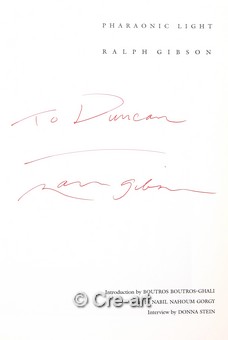 PHARAONIC LIGHT
RALPH GIBSON
To Duncan
Ralph Gibson
Introduction by BOUTROS BOUTROS-GHALI
NABIL NAHOUM GORGY
Interview by DONNA STEIN
© Cre-art